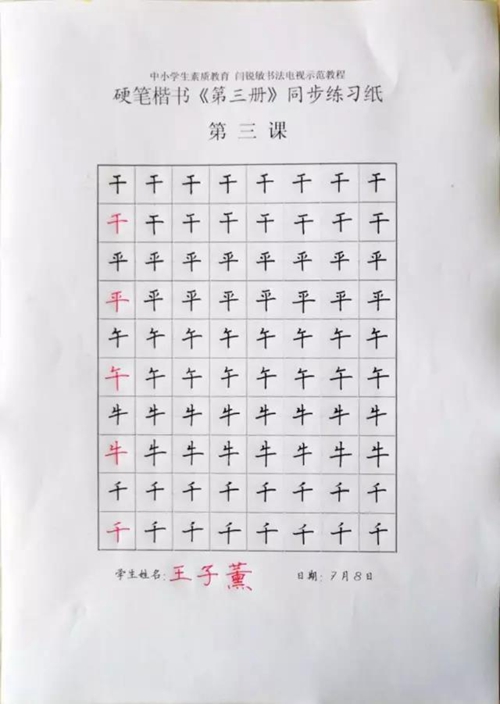 中小学生素质教育 闫锐敏书法电视示范教程
硬笔楷书《第三册》同步练习纸
第三课
干干干干干干干干
干干干干干干干干
平平平平平平平平
平平平平平平平平
午午午午午午午午
午午午午午午午午
牛牛牛牛牛牛牛牛
牛牛牛牛牛牛牛牛
千千千千千千千千
千千千千千千千千
学生姓名:王子薰 日期:7月8日